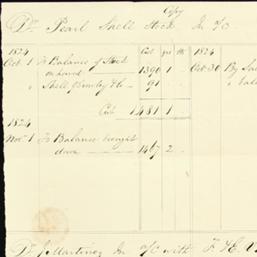 Copy
Dr. Pearl Shell Stock In
1824 Cwt qrs lbs 1824
Oct 1 To Balance of Stock
on hand 1390 1 Oct 30 By
" Shell 91
Cwt 1481 1
1824
Nov 1 To Balance brought
down 1467 2
Dr J. Martinez In with F